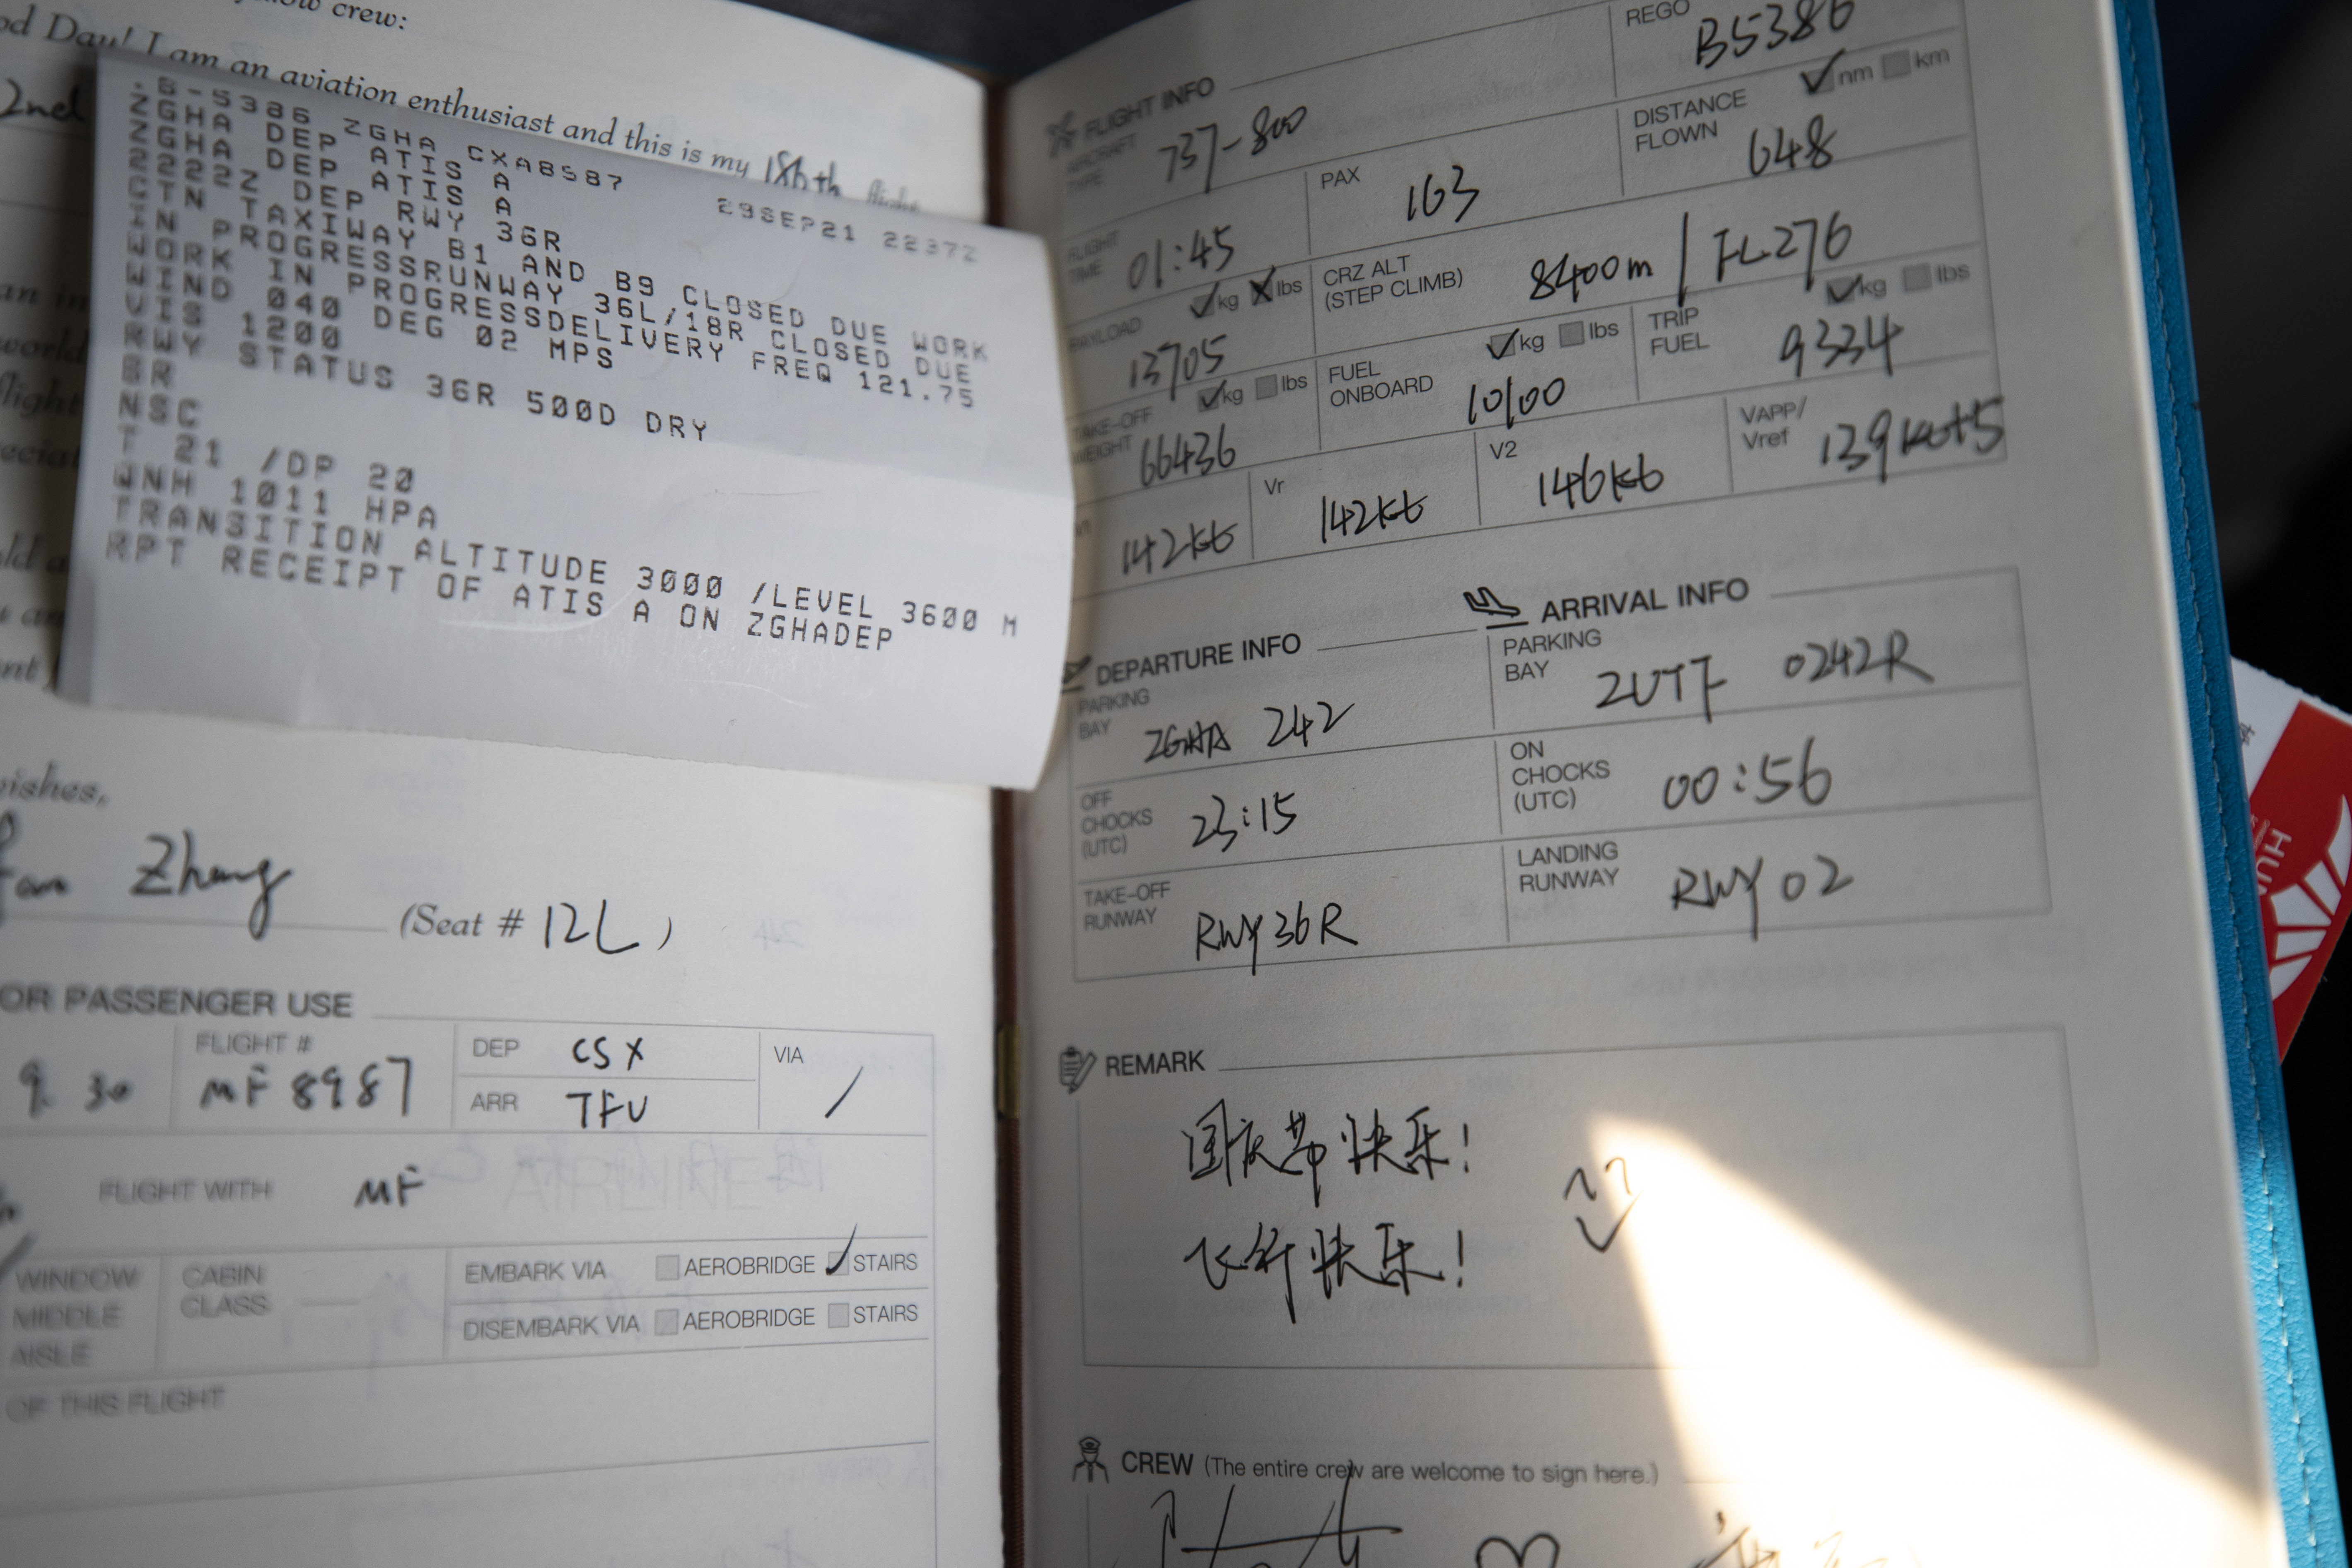 low crew:
od Day! I am an aviation enthusiast and this is my 186th flight
2nd
.B-5386 ZGHA CXA8987
29SEP21 2237Z
ZGHA DEP ATIS A
ZGHA DEP ATIS A
2222Z DEP RWY 36R
CTN TAXIWAY B1 AND B9 CLOSED DUE WORK
IN PROGRESSRUNWAY 36L/18R CLOSED DUE
WORK IN PROGRESSDELIVERY FREQ 121.75
WIND 040 DEG 02 MPS
VIS 1200
RWY STATUS 36R 500D DRY
BR
NSC
T 21 /DP 20
QNH 1011 HPA
TRANSITION ALTITUDE 3000 /LEVEL 3600 M
RPT RECEIPT OF ATIS A ON ZGHADEP
an in
world
flight
ishes,
Zhang
(Seat # 12L)
OR PASSENGER USE
9.30
FLIGHT #
MF8987
DEP CSX
ARR TFU
VIA /
FLIGHT WITH MF
WINDOW
MIDDLE
AISLE
CABIN
CLASS
EMBARK VIA AEROBRIDGE STAIRS
DISEMBARK VIA AEROBRIDGE STAIRS
OF THIS FLIGHT
FLIGHT INFO
AIRCRAFT
TYPE
737-800
REGO
B5386
FLIGHT
TIME
01:45
PAX
163
DISTANCE
FLOWN
nm km
648
PAYLOAD
kg lbs
13705
CRZ ALT
(STEP CLIMB)
8400m / FL276
TAKE-OFF
WEIGHT
kg lbs
66436
FUEL
ONBOARD
kg lbs
10100
TRIP
FUEL
kg lbs
9334
142kt
Vr
142kt
V2
146kt
VAPP/
Vref
139kt+5
DEPARTURE INFO
PARKING
BAY
ZGHA 242
OFF
CHOCKS
(UTC)
23:15
TAKE-OFF
RUNWAY
RWY36R
ARRIVAL INFO
PARKING
BAY
ZUTF 0242R
ON
CHOCKS
(UTC)
00:56
LANDING
RUNWAY
RWY 02
REMARK
国庆节快乐!
飞行快乐!
CREW (The entire crew are welcome to sign here.)